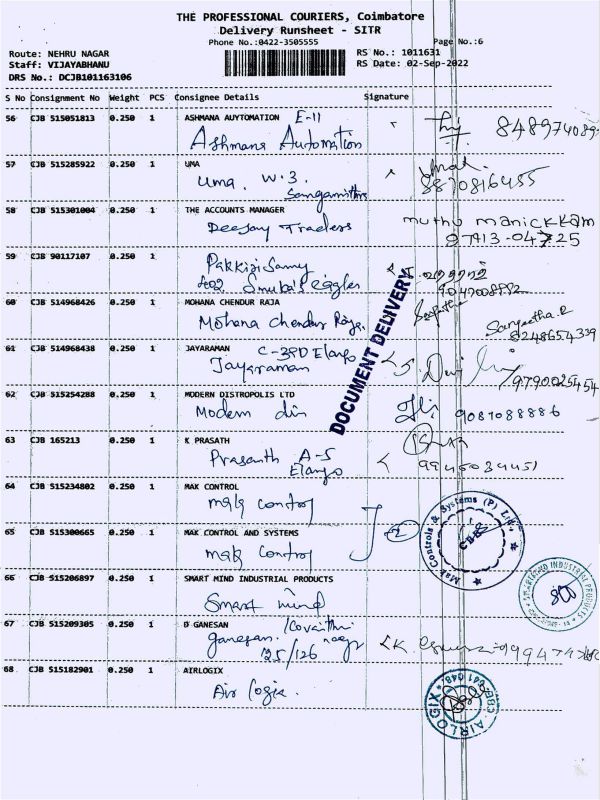 THE PROFESSIONAL COURIERS, Coimbatore
Delivery Runsheet - SITR
Phone No.:0422-3505555
Page No.:6
Route: NEHRU NAGAR
RS No.: 1011631
Staff: VIJAYABHANU
RS Date: 02-Sep-2022
DRS No.: DCJB101163106
S No Consignment No Weight PCS Consignee Details Signature
56 CJB 515051813 0.250 1 ASHMANA AUYTOMATION E-11
Ashmana Automation
57 CJB 515285922 0.250 1 UMA
uma. W.3.
8870816455
58 CJB 515301004 0.250 1 THE ACCOUNTS MANAGER
Deejay Traders
muthu manickkam
87913-04725
59 CJB 90117107 0.250 1
60 CJB 514968426 0.250 1 MOHANA CHENDUR RAJA
Mohana Chendur Raja.
Sangeetha.R
8248654339
61 CJB 514968438 0.250 1 JAYARAMAN
Jayaraman
9790025454
DOCUMENT DELIVERY
62 CJB 515254288 0.250 1 MODERN DISTROPOLIS LTD
Modern dis
9087088886
63 CJB 165213 0.250 1 K PRASATH
Prasanth A-5
Elango
64 CJB 515234802 0.250 1 MAK CONTROL
mak control
65 CJB 515300665 0.250 1 MAK CONTROL AND SYSTEMS
mak control
2
Mak Controls & Systems (P) Ltd.
66 CJB 515206897 0.250 1 SMART MIND INDUSTRIAL PRODUCTS
Smart mind
67 CJB 515209305 0.250 1 D GANESAN
ganesan.
125/126
68 CJB 515182901 0.250 1 AIRLOGIX
Air logix.
AIRLOGIX